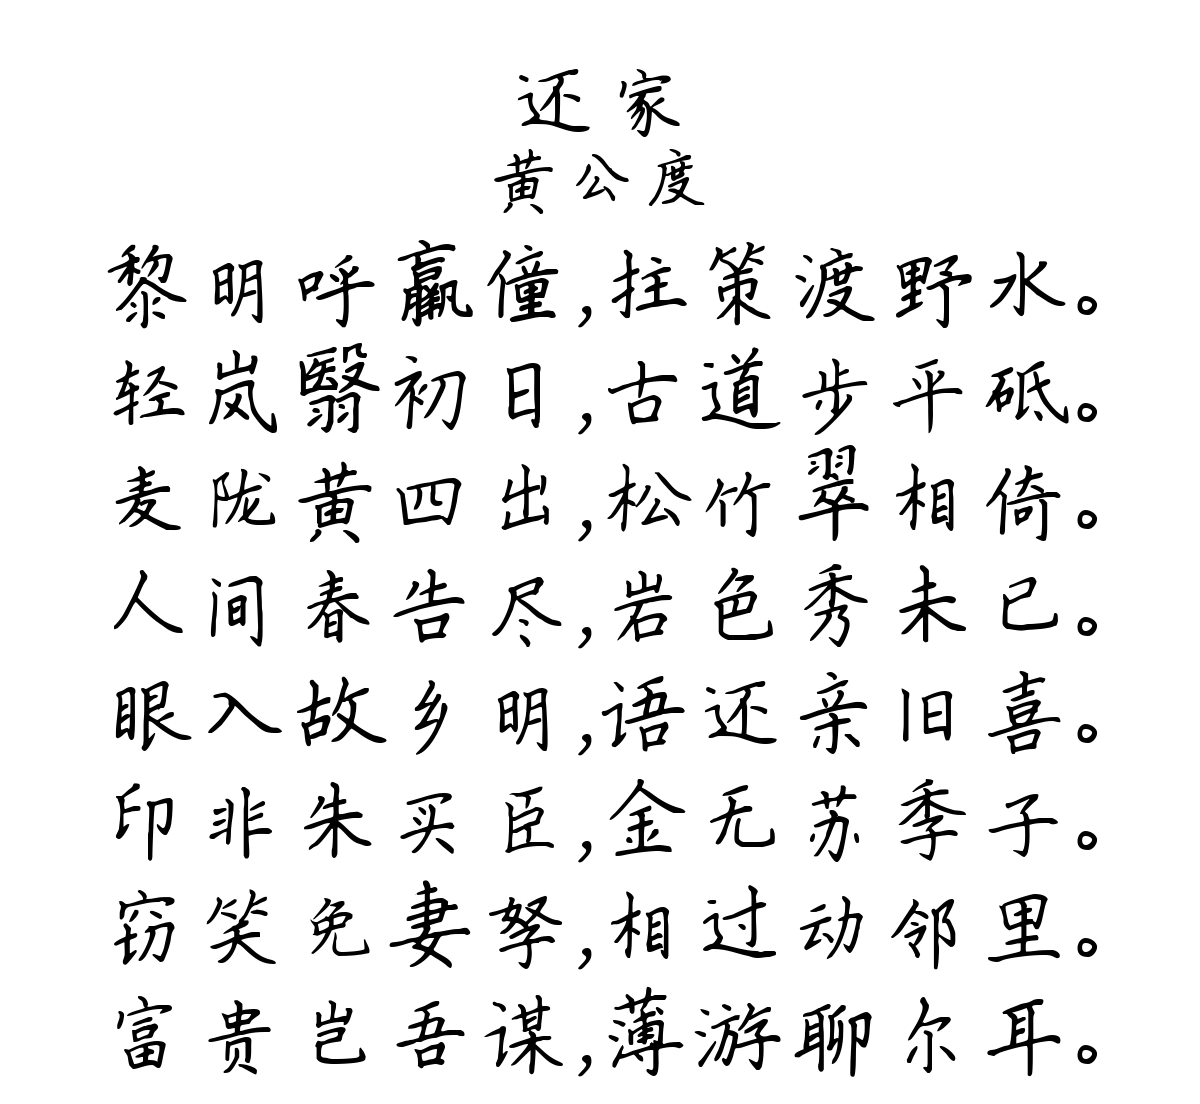 还家
黄公度
黎明呼羸僮,拄策渡野水。
轻岚翳初日,古道步平砥。
麦陇黄四出,松竹翠相倚。
人间春告尽,岩色秀未已。
眼入故乡明,语还亲旧喜。
印非朱买臣,金无苏季子。
窃笑免妻孥,相过动邻里。
富贵岂吾谋,薄游聊尔耳。